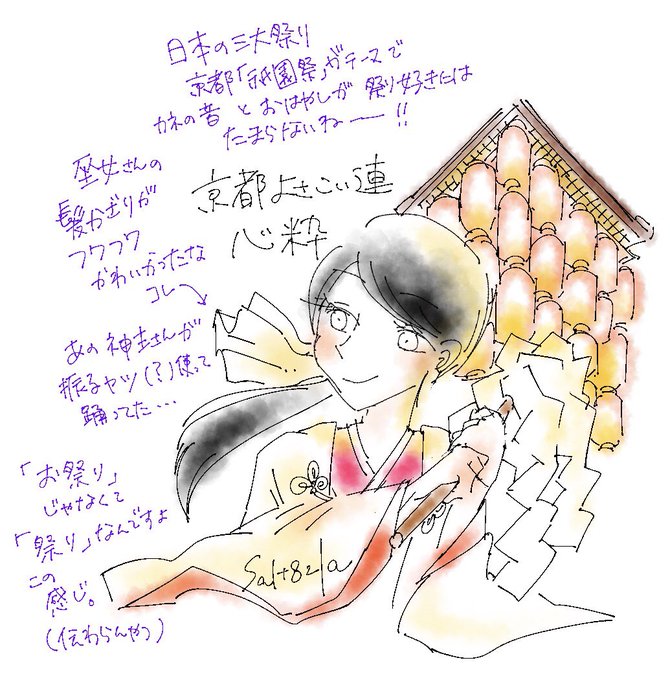 日本の三大祭り
京都「祇園祭」がテーマで
カネの音とおはやしが祭り好きには
たまらないねー!!
巫女さんの
髪かざりが
フワフワ
かわいかったな
コレ→
京都よさこい連
心粋
あの神主さんが
振るヤツ(?)使って
踊ってた…
「お祭り」
じゃなくて
「祭り」なんですよ
この
感じ。
(伝わらんやつ)
Salt821a